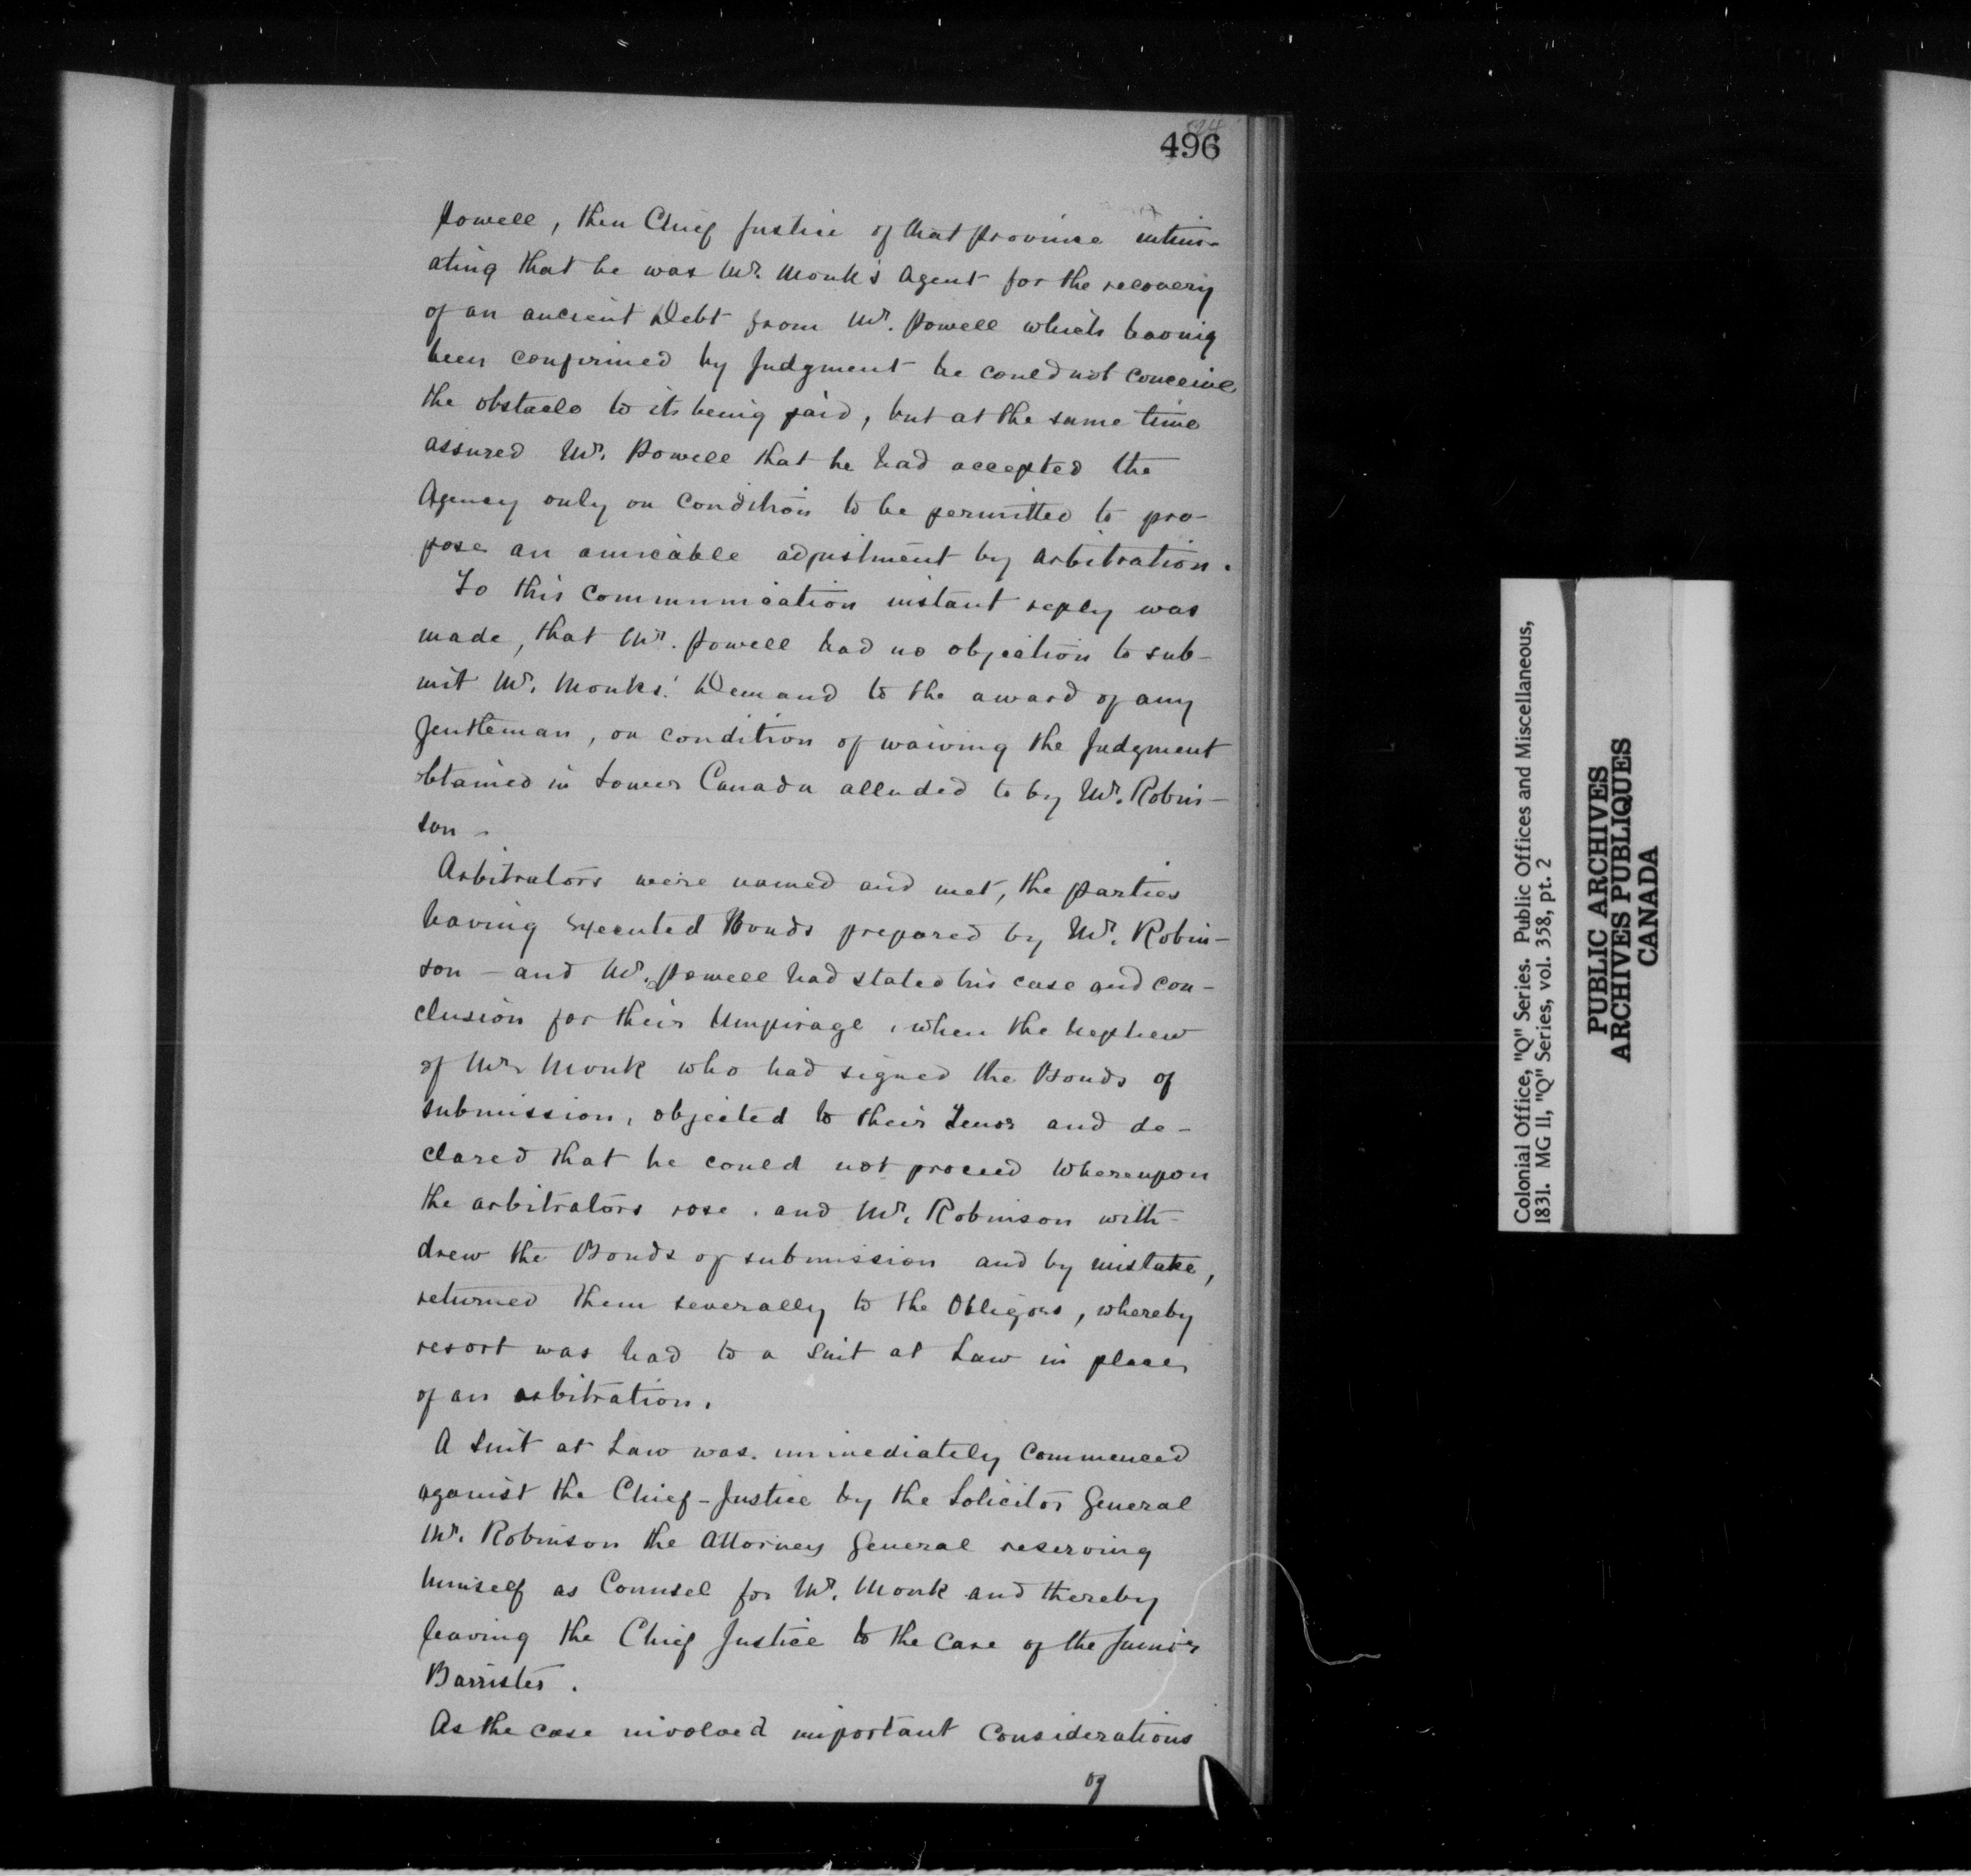 496
Powell, then Chief Justice of that province intim-
ating that he was Mr. Monk's Agent for the recovery
of an ancient Debt from Mr. Powell which having
been confirmed by Judgment he could not conceive
the obstacle to its being paid, but at the same time
assured Mr. Powell that he had accepted the
Agency only on condition to be permitted to pro-
pose an amicable adjustment by arbitration.
To this communication instant reply was
made, that Mr. Powell had no objection to sub-
mit Mr. Monks' Demand to the award of any
Gentleman, on condition of waiving the Judgment
obtained in Lower Canada alluded to by Mr. Robin-
son -
Arbitrators were named and met, the parties
having executed Bonds prepared by Mr. Robin-
son - and Mr. Powell had stated his case and con-
clusion for their Umpirage, when the nephew
of Mr. Monk who had signed the Bonds of
submission, objected to their Tenor and de-
clared that he could not proceed whereupon
the arbitrators rose. and Mr. Robinson with-
drew the Bonds of submission and by mistake,
returned them severally to the Obligors, whereby
resort was had to a suit at Law in place
of an arbitration.
A suit at Law was immediately commenced
against the Chief-Justice by the Solicitor General
Mr. Robinson the Attorney General reserving
himself as Counsel for Mr. Monk and thereby
leaving the Chief Justice to the care of the Junior
Barrister.
As the case involved important considerations
of
Colonial Office, "Q" Series. Public Offices and Miscellaneous,
1831. MG 11, "Q" Series, vol. 358, pt. 2
PUBLIC ARCHIVES
ARCHIVES PUBLIQUES
CANADA